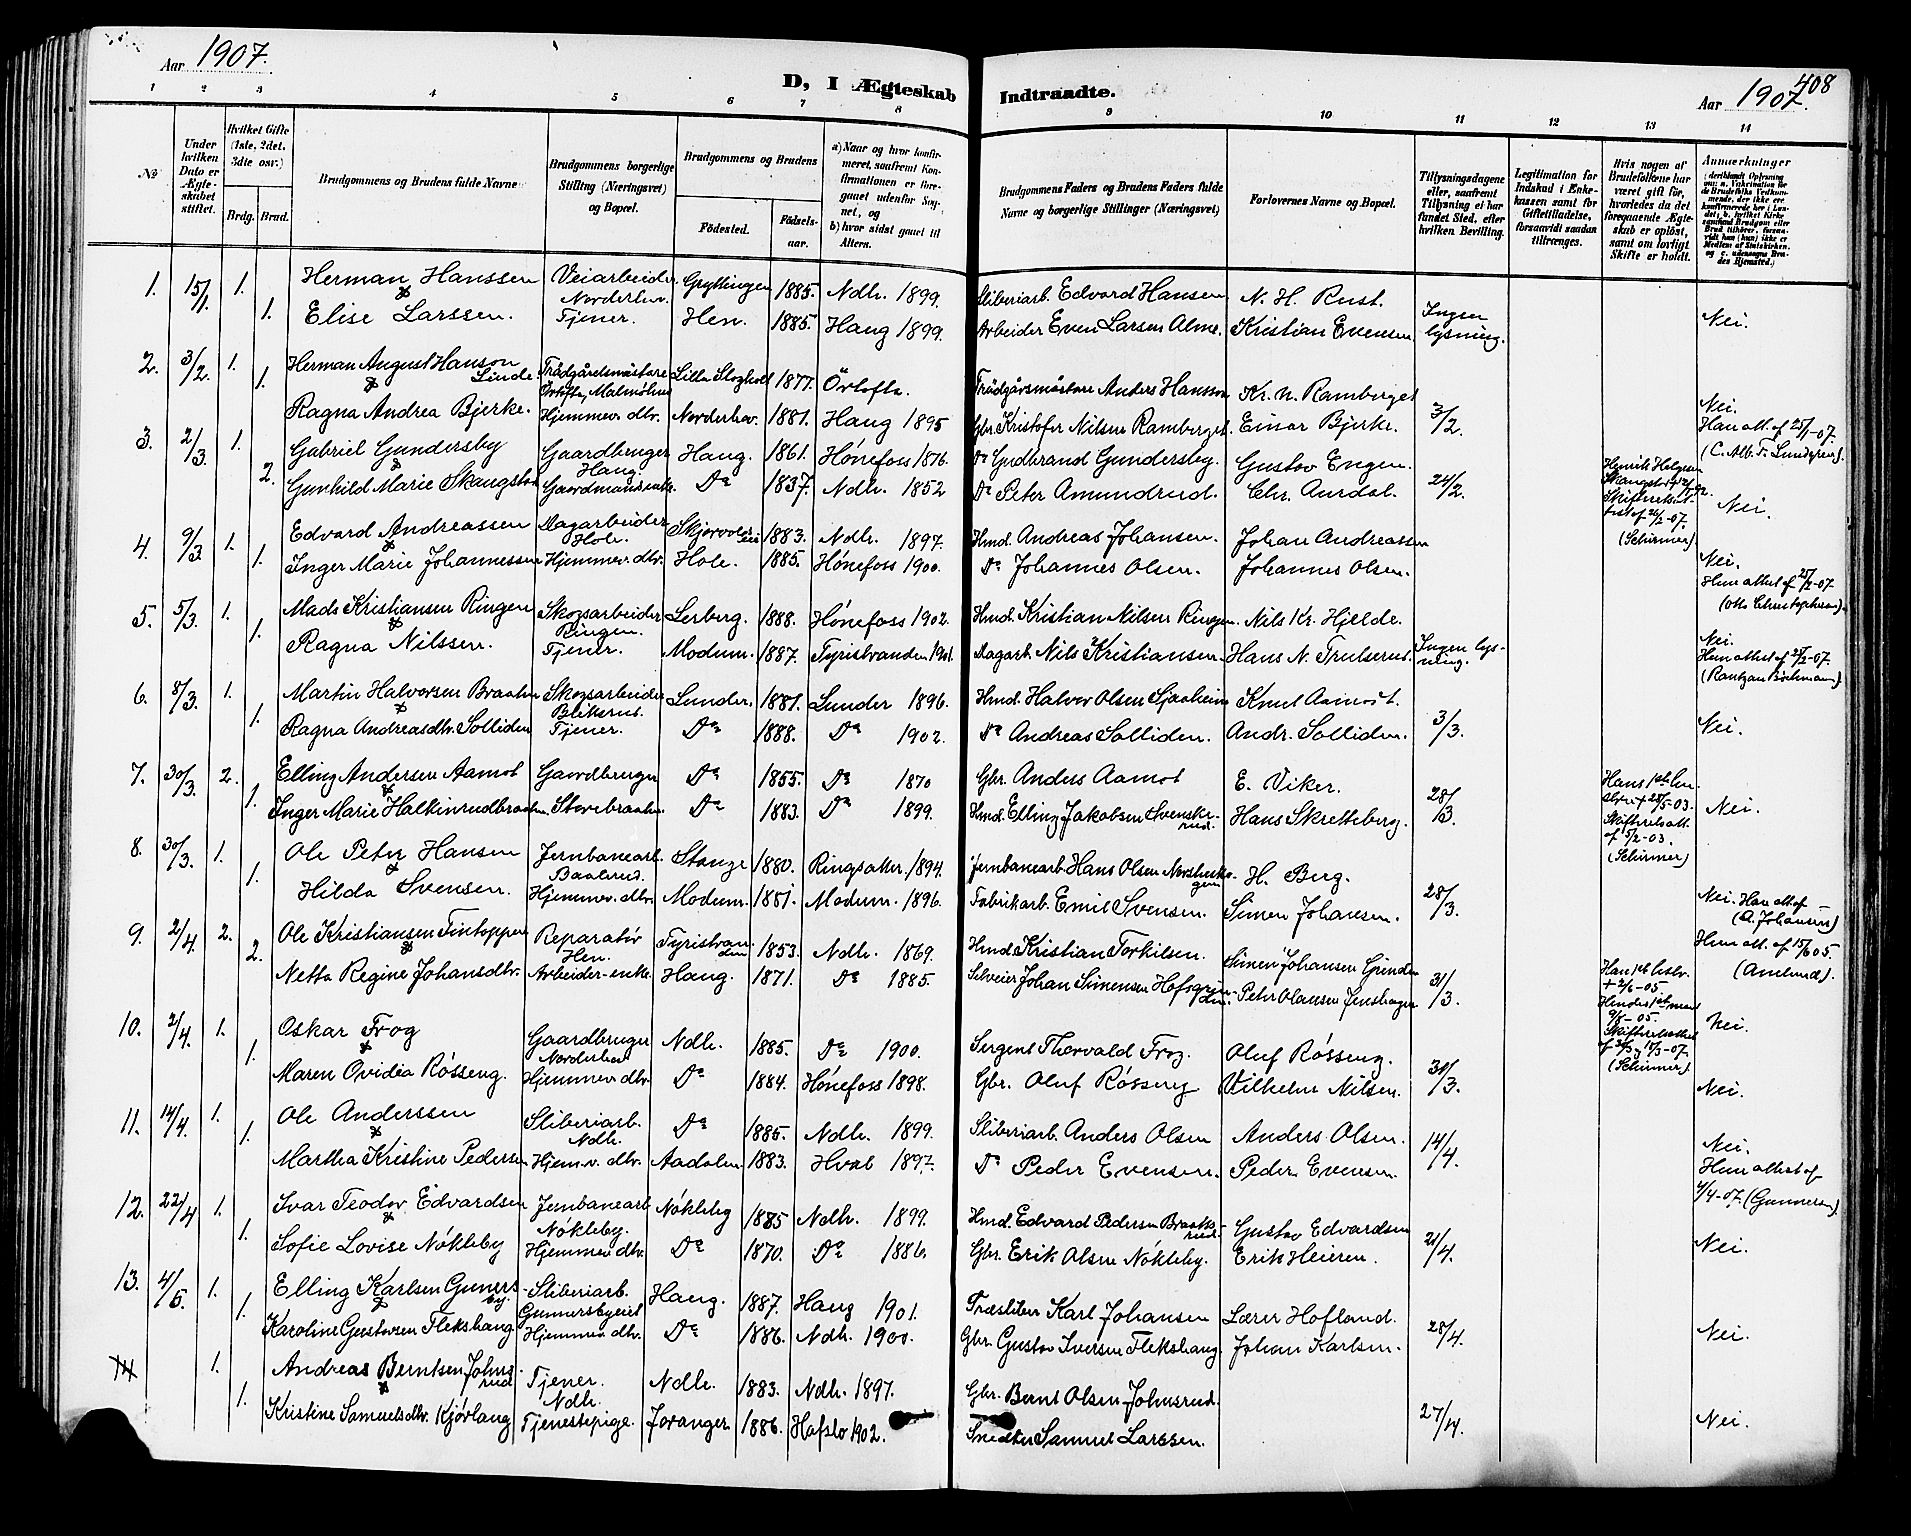 Aar 1907.
D, I Ægteskab Indtraadte.
Aar 1907.
408
1 2 3 4 5 6 7 8 9 10 11 12 13 14
№
Under hvilken Dato er Ægteskabet stiftet.
Hvilket Gifte (1ste, 2det, 3dte osv.)
Brdg. Brud.
Brudgommens og Brudens fulde Navne
Brudgommens borgerlige Stilling (Næringsvei) og Bopæl.
Brudgommens og Brudens
Fødested. Fødsels-aar.
a) Naar og hvor konfirmeret, saafremt Konfirmationen er foregaaet udenfor Sognet, og
b) hvor sidst gaaet til Alters.
Brudgommens Faders og Brudens Faders fulde Navne og borgerlige Stillinger (Næringsvei)
Forlovernes Navne og Bopæl.
Tillysningsdagene eller, saafremt Tillysning ei har fundet Sted, efter hvilken Bevilling.
Legitimation for Indskud i Enkekassen samt for Giftetilladelse, forsaavidt saadan tiltrænges.
Hvis nogen af Brudefolkene har været gift før, hvorledes da det foregaaende Ægteskab er opløst, samt om lovligt Skifte er holdt.
Anmærkninger
1. 15/1. 1. Herman Hanssen Veiarbeider Norderhov Gryttingen 1885. Ndh. 1899. Sliberiarb. Edvard Hansen N. H. Rust. Ingen lysning.
1. Elise Larssen. Tjener. Hen. 1885. Haug 1899. Arbeider Even Larsen Alme. Kristian Evensen Nei.
2. 3/2. 1. Herman August Hanson Linde. Trädgårdsmästare Örtofta, Malmöhus 1877. Örtofta. Trädgårsmästare Anders Hansson Kr. N. Ramberget
1. Ragna Andrea Bjerke. Hjemmev. dtr. Norderhov. 1881. Haug 1895 Gbr. Kristofer Nilsen Ramberget. Einar Bjerke. 3/2. Nei.
Han att. af 25/1-07.
3. 2/3. 1. Gabriel Gundersby Gaardbruger Haug. Haug. 1861. Hönefoss 1876. Do Gudbrand Gundersby. Gustav Engen.
2. Gunhild Marie Skaugstad Gaardmandsenke. Do 1837. Ndh. 1852 Do Peter Amundrud. Chr. Aurdal. 24/2.
(Schirmer) Nei.
4. 9/3. 1. Edvard Andreassen Dagarbeider Hole. 1883. Ndh. 1897. Hmd. Andreas Johansen. Johan Andreassen
1. Inger Marie Johannessen Hjemmev. dtr. Hole. 1885. Hönefoss 1900. Do Johannes Olsen. Johannes Olsen. Nei.
Hun attest af 25/2-07.
(Otto Christophersen).
5. 5/3. 1. Mads Kristiansen Ringen Skogsarbeider Ringen. Lerberg. 1888. Hönefoss 1902. Hmd. Kristian Nilsen Ringen. Nils Kr. Hjelde.
1. Ragna Nilssen. Tjener. Modum. 1887. Tyristranden 1901. Dagarb. Nils Kristiansen. Hans N. Trulserud. Ingen lysning. Nei.
6. 8/3. 1. Martin Halvorsen Braaten Skogsarbeider Lunder. 1881. Lunder 1896. Hmd. Halvor Olsen Sjaaheim Knut Aamot.
1. Ragna Andreasdtr. Solliden Tjener. Do 1888. Do 1902. Do Andreas Solliden. Andr. Solliden. 3/3. Nei.
7. 30/3. 2. Elling Andersen Aamot Gaardbruger Do 1855. Do 1870 Gbr. Anders Aamot E. Viker.
1. Inger Marie Halkinrudbraaten. Storebraaten. Do 1883. Do 1899. Hmd. Elling Jakobsen Svenskerud. Hans Skretteberg. 28/3 (Schirmer) Nei.
8. 30/3. 1. Ole Peter Hansen Jernbanearb. Stange 1880. Ringsaker. 1894. Jernbanearb. Hans Olsen H. Berg.
1. Hilda Svensen. Hjemmev. dtr. Modum. 1881. Modum. 1896. Fabrikarb. Emil Svensen. Simen Johansen. 28/3. Nei. Han att. af
9. 2/4. 2. Ole Kristiansen Tintoppen Reparatör Hen. Tyristranden 1853. Ndh. 1869. Hmd. Kristian Torkilsen. Simen Johansen
2. Netta Regine Johansdtr. Arbeider-enke. Haug. 1871. Do 1885. Selveier Johan Simensen Peter Olausen 31/3. Hun att. af 15/6 05.
10. 2/4. 1. Oskar Frog Gaardbruger Norderhov Ndh. 1885. Do 1900. Sergent Thorvald Frog. Oluf Rösseng. (Schirmer) Nei.
1. Maren Ovidia Rösseng. Hjemmev. dtr. Do 1884. Hönefoss 1898. Gbr. Oluf Rösseng Vilhelm Nilsen. 30/3. Nei.
11. 14/4. 1. Ole Anderssen Sliberiarb. Ndh. Do 1885. Ndh. 1899. Sliberiarb. Anders Olsen Anders Olsen.
1. Martha Kristine Pedersen Hjem.v. dtr. Aadalen 1883. Hval 1897. Do Peder Evensen. Peder Evensen 14/4. Nei.
Hun attest af
4/4-07. (Gunnersen).
12. 22/4. 1. Ivar Teodor Edvardsen Jernbanearb. Nökleby. Nökleby 1885 Ndh. 1899. Hmd. Edvard Pedersen Gustav Edvardsen
1. Sofie Lovise Nökleby Hjemmev dtr. Do 1870. Do 1886. Gbr. Erik Olsen Nökleby. Erik Heieren. 21/4. Nei.
13. 4/5. 1. Elling Karlsen Gunersby. Sliberiarb. Gunnersbyeiet Haug. 1887. Haug 1901. Træsliber Karl Johansen Lærer Hofland.
1. Karoline Gustavsen Flekshaug Hjemmev dtr. Do 1886. Ndh. 1900. Gbr. Gustav Iversen Flekshaug Johan Karlsen. 28/4. Nei.
14 1. Andreas Berntsen Johnsrud Tjener. Ndh. Ndh. 1883. Ndh. 1897. Gbr. Bernt Olsen Johnsrud.
1. Kristine Samuelsdtr. Kjörlaug Tjenestepige. Joranger 1886. Hafslo 1902. Snedker Samuel Larssen. 27/4. Nei.